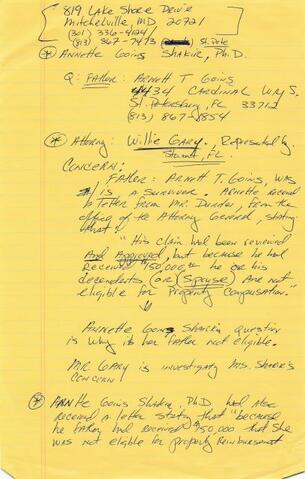 819 Lake Shore Drive
Mitchelville, MD 20721
(301) 336-4124
(813) 867-7473 St. Pete
* Annette Goins Shakir, Ph.D.
Q: Father: Arnett T. Goins
4434 Cardinal Way S.
St. Petersburg, FL 33712
(813) 867-1854
* Attorney: Willie Gary. Represented by
Stuart, FL
Concern:
Father: Arnett T. Goins, was
/is a survivor. Arnette received
a letter from Mr. of the
office of the Attorney General, stating
that:
"His claim had been reviewed
And Approved, but because he had
received $150,000.00 he or his
decendents (or) (Spouse) are not
eligible for Property Compensation."
Annette Goins Shakir's question
is why is her Father not eligible.
Mr. Gary is investigating Ms. Shakir's
concern
* Annette Goins Shakir, Ph.D. had also
received a letter stating that "because
he Father had received $150,000 that she
was not eligible for property reimbursement